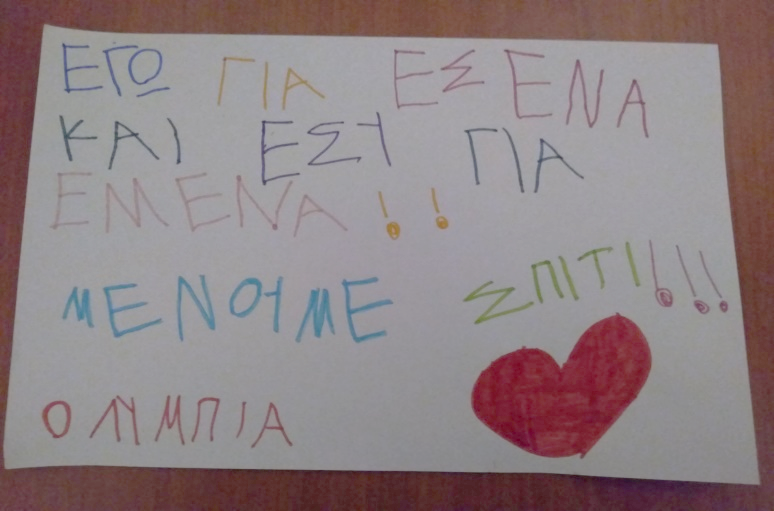 ΕΓΩ ΓΙΑ ΕΣΕΝΑ
ΚΑΙ ΕΣΥ ΓΙΑ
ΕΜΕΝΑ!!
ΜΕΝΟΥΜΕ ΣΠΙΤΙ!!!
ΟΛΥΜΠΙΑ